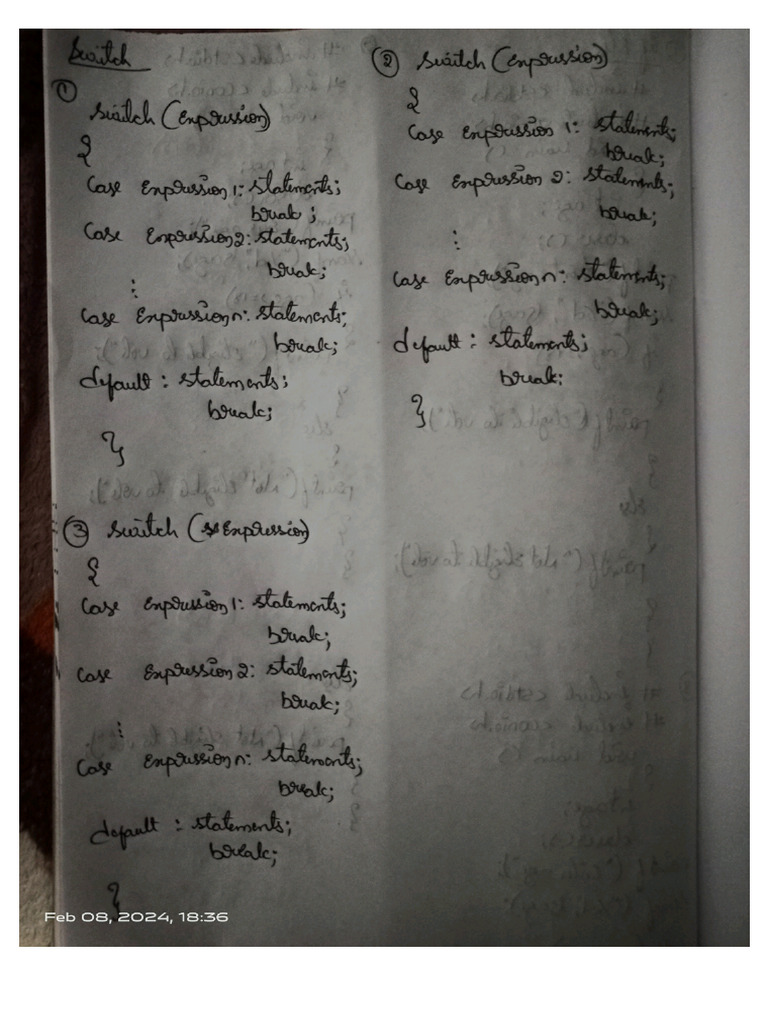 Switch
① switch (Expression)
{
Case Expression 1: statements;
break;
Case Expression 2: statements;
break;
⋮
Case Expression n: statements;
break;
default : statements;
break;
}
② switch (Expression)
{
Case Expression 1: statements;
break;
Case Expression 2: statements;
break;
⋮
Case Expression n: statements;
break;
default : statements;
break;
}
③ switch (Expression)
{
Case Expression 1: statements;
break;
Case Expression 2: statements;
break;
⋮
Case Expression n: statements;
break;
default : statements;
break;
}
Feb 08, 2024, 18:36